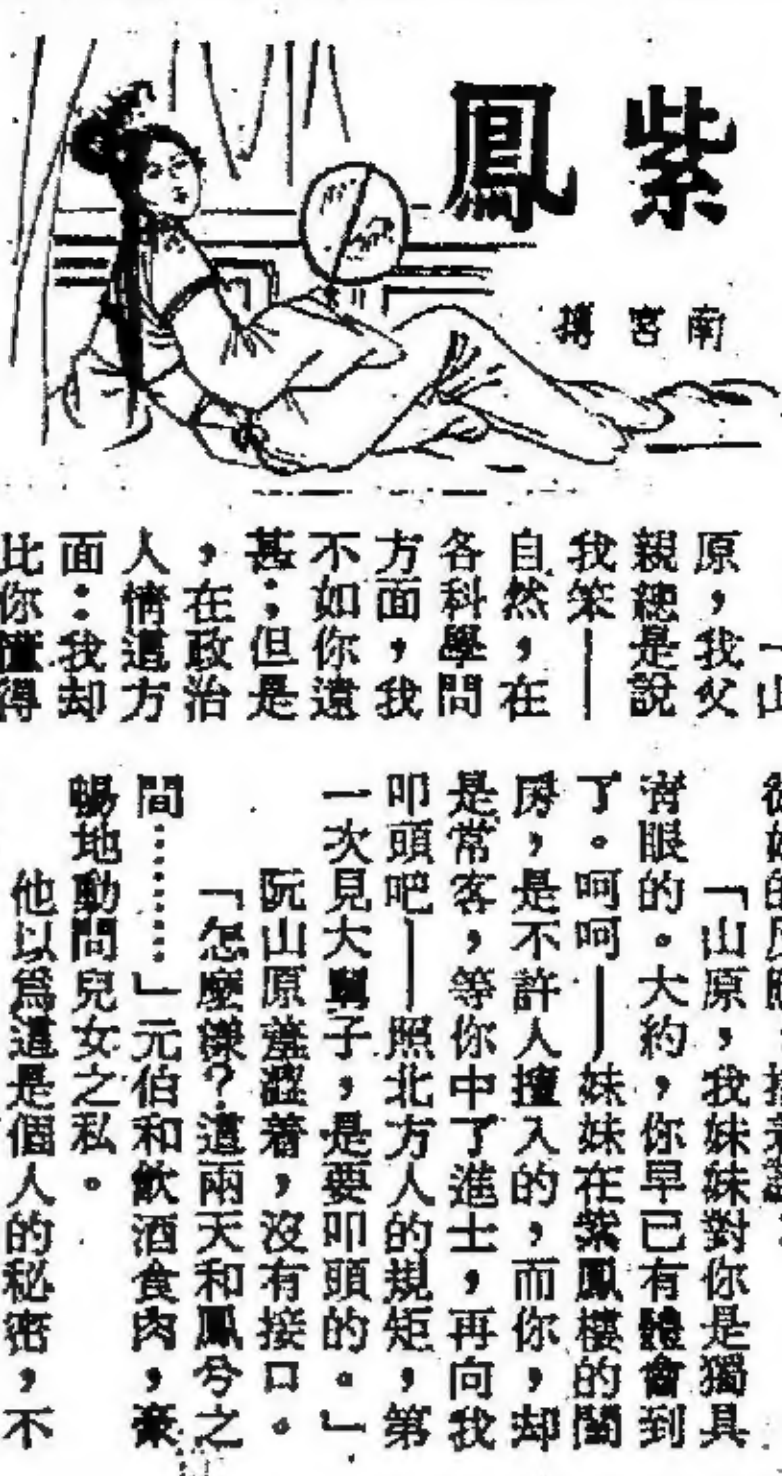 紫鳳
南宮搏
「山
原,我父
親總是說
我笨——
自然,在
各科學問
方面,我
不如你遠
甚;但是
,在政治
人情這方
面:我却
比你懂得
「山原,我妹妹對你是獨具
青眼的。大約,你早已有體會到
了。呵呵——妹妹在紫鳳樓的閨
房,是不許人擅入的,而你,却
是常客,等你中了進士,再向我
叩頭吧——照北方人的規矩,第
一次見大舅子,是要叩頭的。」
阮山原羞澀着,沒有接口。
「怎麼樣?這兩天和鳳兮之
間………」元伯和飲酒食肉,豪
暢地動問兒女之私。
他以爲這是個人的秘密,不